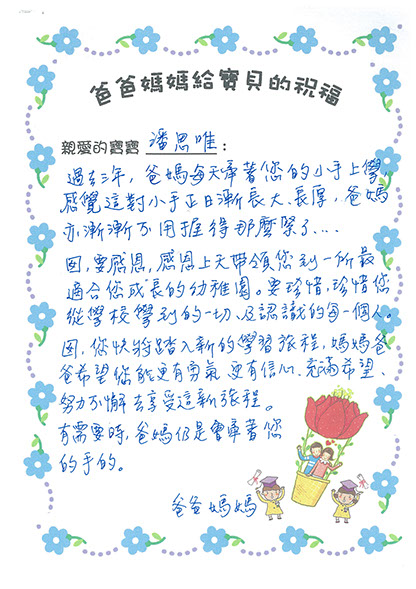 爸爸媽媽給寶貝的祝福
親愛的寶寶 潘思唯：
過去三年，爸媽每天帶著您的小手上學，
感覺這對小手正日漸長大、長厚，爸媽
亦漸漸不用握得那麼緊了…
因，要感恩，感恩上天帶領您到一所最
適合您成長的幼稚園。要珍惜，珍惜您
從學校學到的一切、及認識的每一個人。
因，您快將踏入新的學習旅程，媽媽爸
爸希望您能更有勇氣、更有信心、充滿希望、
努力不懈去享受這新旅程。
有需要時，爸媽仍是會牽著您
的手的。
爸爸媽媽